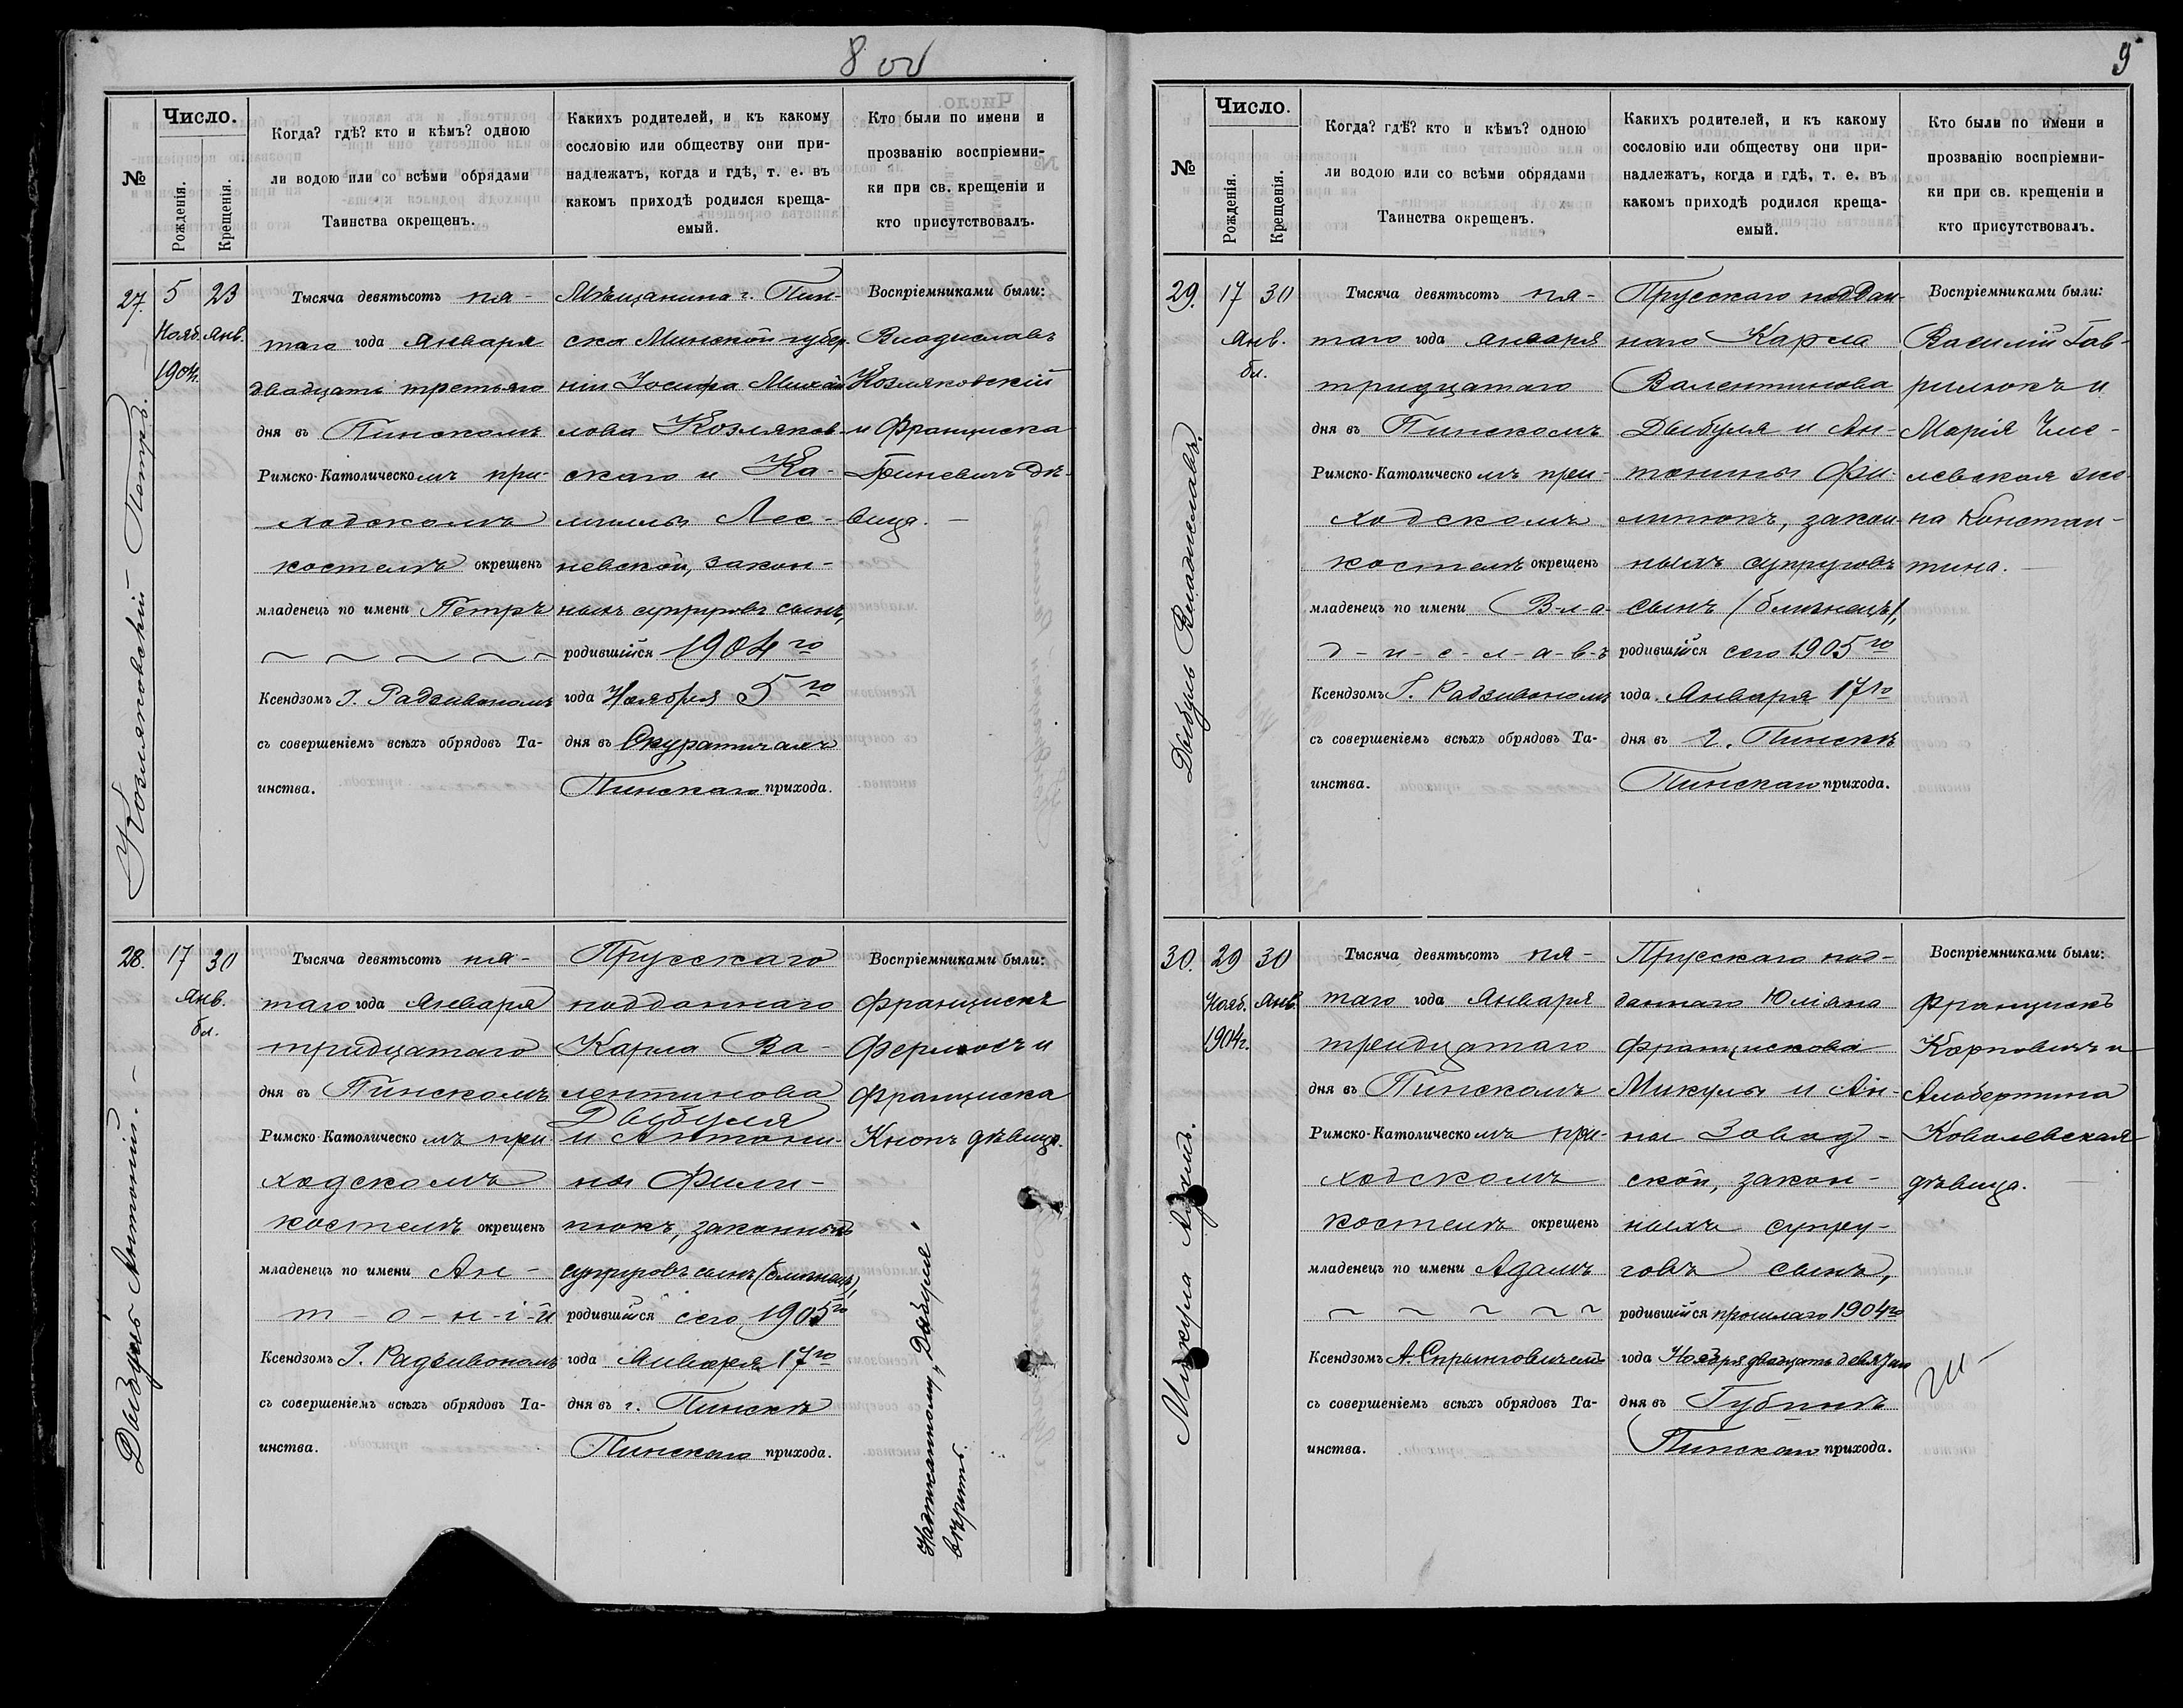 8 об
№
Число.
Рожденія.
Крещенія.
Когда? гдѣ? кто и кѣмъ? одною
ли водою или со всѣми обрядами
Таинства окрещенъ.
Какихъ родителей, и къ какому
сословію или обществу они при-
надлежатъ, когда и гдѣ, т. е. въ
какомъ приходѣ родился креща-
емый.
Кто были по имени и
прозванію воспріемни-
ки при св. крещеніи и
кто присутствовалъ.
27.
Козляковскій Петръ.
5
Нояб.
1904г.
23
Янв.
Тысяча девятьсотъ пя-
таго года Января
двадцать третьяго
дня въ Пинскомъ
Римско-Католическомъ при-
ходскомъ
костелѣ окрещенъ
младенецъ по имени Петръ
Ксендзомъ І. Радзивономъ
съ совершеніемъ всѣхъ обрядовъ Та-
инства.
Мѣщанина г. Пин-
ска Минской губер-
ніи Іосифа Михай
лова Козляков-
скаго и Ка-
миллы Лес-
невской, закон-
ныхъ супруговъ сынъ,
родившійся 1904го
года Ноября 5го
дня въ Скуратичахъ
Пинскаго прихода.
Воспріемниками были:
Владиславъ
Козляковскій
и Франциска
Гриневичъ дѣ-
вица.
28.
Дыбуль Антоній.
17
Янв.
бл.
30
Тысяча девятьсотъ пя-
таго года Января
тридцатаго
дня въ Пинскомъ
Римско-Католическомъ при-
ходскомъ
костелѣ окрещенъ
младенецъ по имени Ан-
т-о-н-і-й
Ксендзомъ І. Радзивономъ
съ совершеніемъ всѣхъ обрядовъ Та-
инства.
Прусскаго
подданнаго
Карла Ва-
лентинова
Дыбуля
и Антони-
ны Фили-
пюкъ, законныхъ
супруговъ сынъ (близнецъ),
родившійся сего 1905го
года Января 17го
дня въ г. Пинскѣ
Пинскаго прихода.
Воспріемниками были:
Францискъ
и
Франциска
Кнопъ дѣвица.
Надписанному „Дыбуля"
вѣрить.
9
№
Число.
Рожденія.
Крещенія.
Когда? гдѣ? кто и кѣмъ? одною
ли водою или со всѣми обрядами
Таинства окрещенъ.
Какихъ родителей, и къ какому
сословію или обществу они при-
надлежатъ, когда и гдѣ, т. е. въ
какомъ приходѣ родился креща-
емый.
Кто были по имени и
прозванію воспріемни-
ки при св. крещеніи и
кто присутствовалъ.
29.
Дыбуль Владиславъ.
17
30
Янв.
бл.
Тысяча девятьсотъ пя-
таго года января
тридцатаго
дня въ Пинскомъ
Римско-Католическомъ при-
ходскомъ
костелѣ окрещенъ
младенецъ по имени В-л-а-
д-и-с-л-а-в-ъ
Ксендзомъ І. Радзивономъ
съ совершеніемъ всѣхъ обрядовъ Та-
инства.
Прусскаго поддан-
наго Карла
Валентинова
Дыбуля и Ан-
тонины Фи-
липюкъ, закон-
ныхъ супруговъ
сынъ (близнецъ),
родившійся сего 1905го
года Января 17го
дня въ г. Пинскѣ
Пинскаго прихода.
Воспріемниками были:
Василій Гав-
рилюкъ и
Марія
левская же-
на Констан-
тина.
30.
Микула Адамъ.
29
Нояб.
1904г.
30
Янв.
Тысяча девятьсотъ пя-
таго года Января
тридцатаго
дня въ Пинскомъ
Римско-Католическомъ при-
ходскомъ
костелѣ окрещенъ
младенецъ по имени Адамъ
Ксендзомъ А. Спрынговичемъ
съ совершеніемъ всѣхъ обрядовъ Та-
инства.
Прусскаго под-
даннаго Юліана
Францискова
Микулы и Ан-
ны Завад-
ской, закон-
ныхъ супру-
говъ сынъ,
родившійся прошлаго 1904го
года Ноября двадцать девятаго
дня въ Губинѣ
Пинскаго прихода.
Воспріемниками были:
Францискъ
Карповичъ и
Альбертина
Ковалевская
дѣвица.